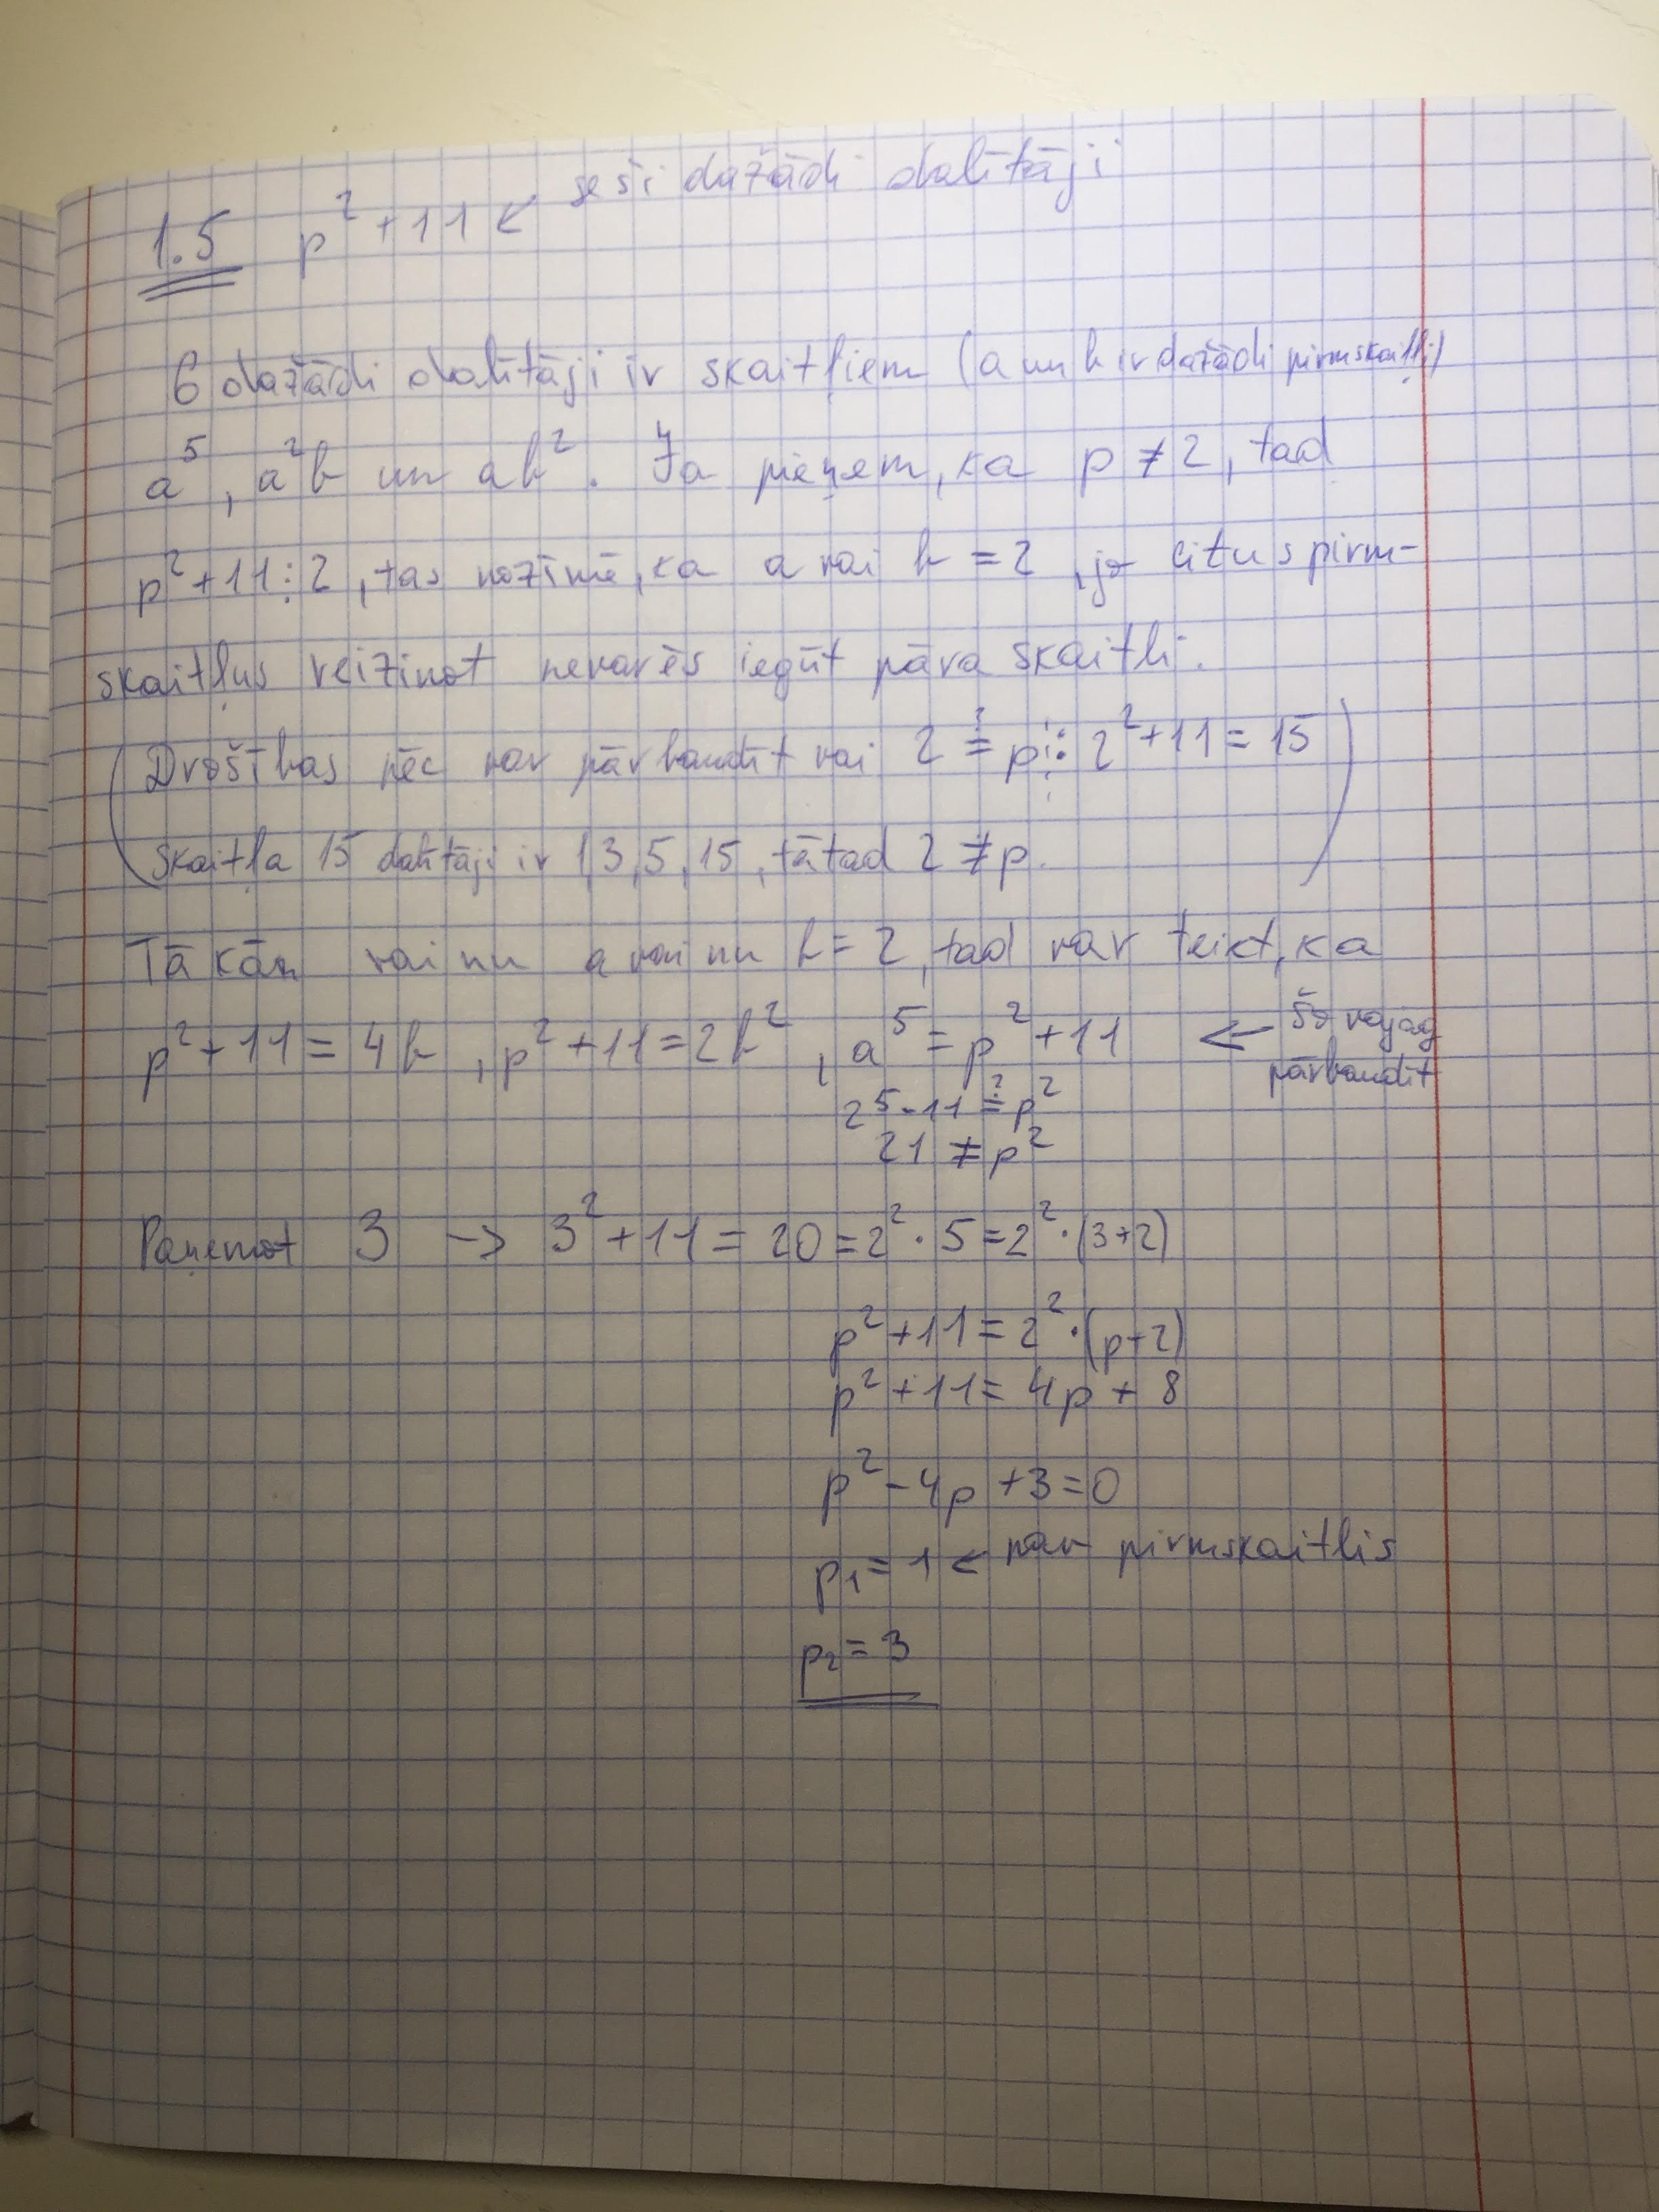 1.5 p²+11 ← seši dažādi dalītāji
6 dažādi dalītāji ir skaitļiem (a un b ir dažādi pirmskaitļi)
a⁵, a²b un ab². Ja pieņem, ka p ≠ 2, tad
p²+11⋮2, tas nozīmē, ka a vai b = 2, jo citus pirm-
skaitļus reizinot nevarēs iegūt pāra skaitli.
(Drošības pēc var pārbaudīt vai 2 ≟ p: 2²+11 = 15
Skaitļa 15 dalītāji ir 1,3,5,15, tātad 2 ≠ p.)
Tā kā vai nu a vai nu b = 2, tad var teikt, ka
p²+11 = 4b, p²+11 = 2b², a⁵ = p²+11 ← Šo vajag
pārbaudīt
2⁵-11 ≟ p²
21 ≠ p²
Paņemot 3 → 3²+11 = 20 = 2²·5 = 2²·(3+2)
p²+11 = 2²·(p+2)
p²+11 = 4p + 8
p²-4p+3=0
p₁ = 1 ← nav pirmskaitlis
p₂ = 3